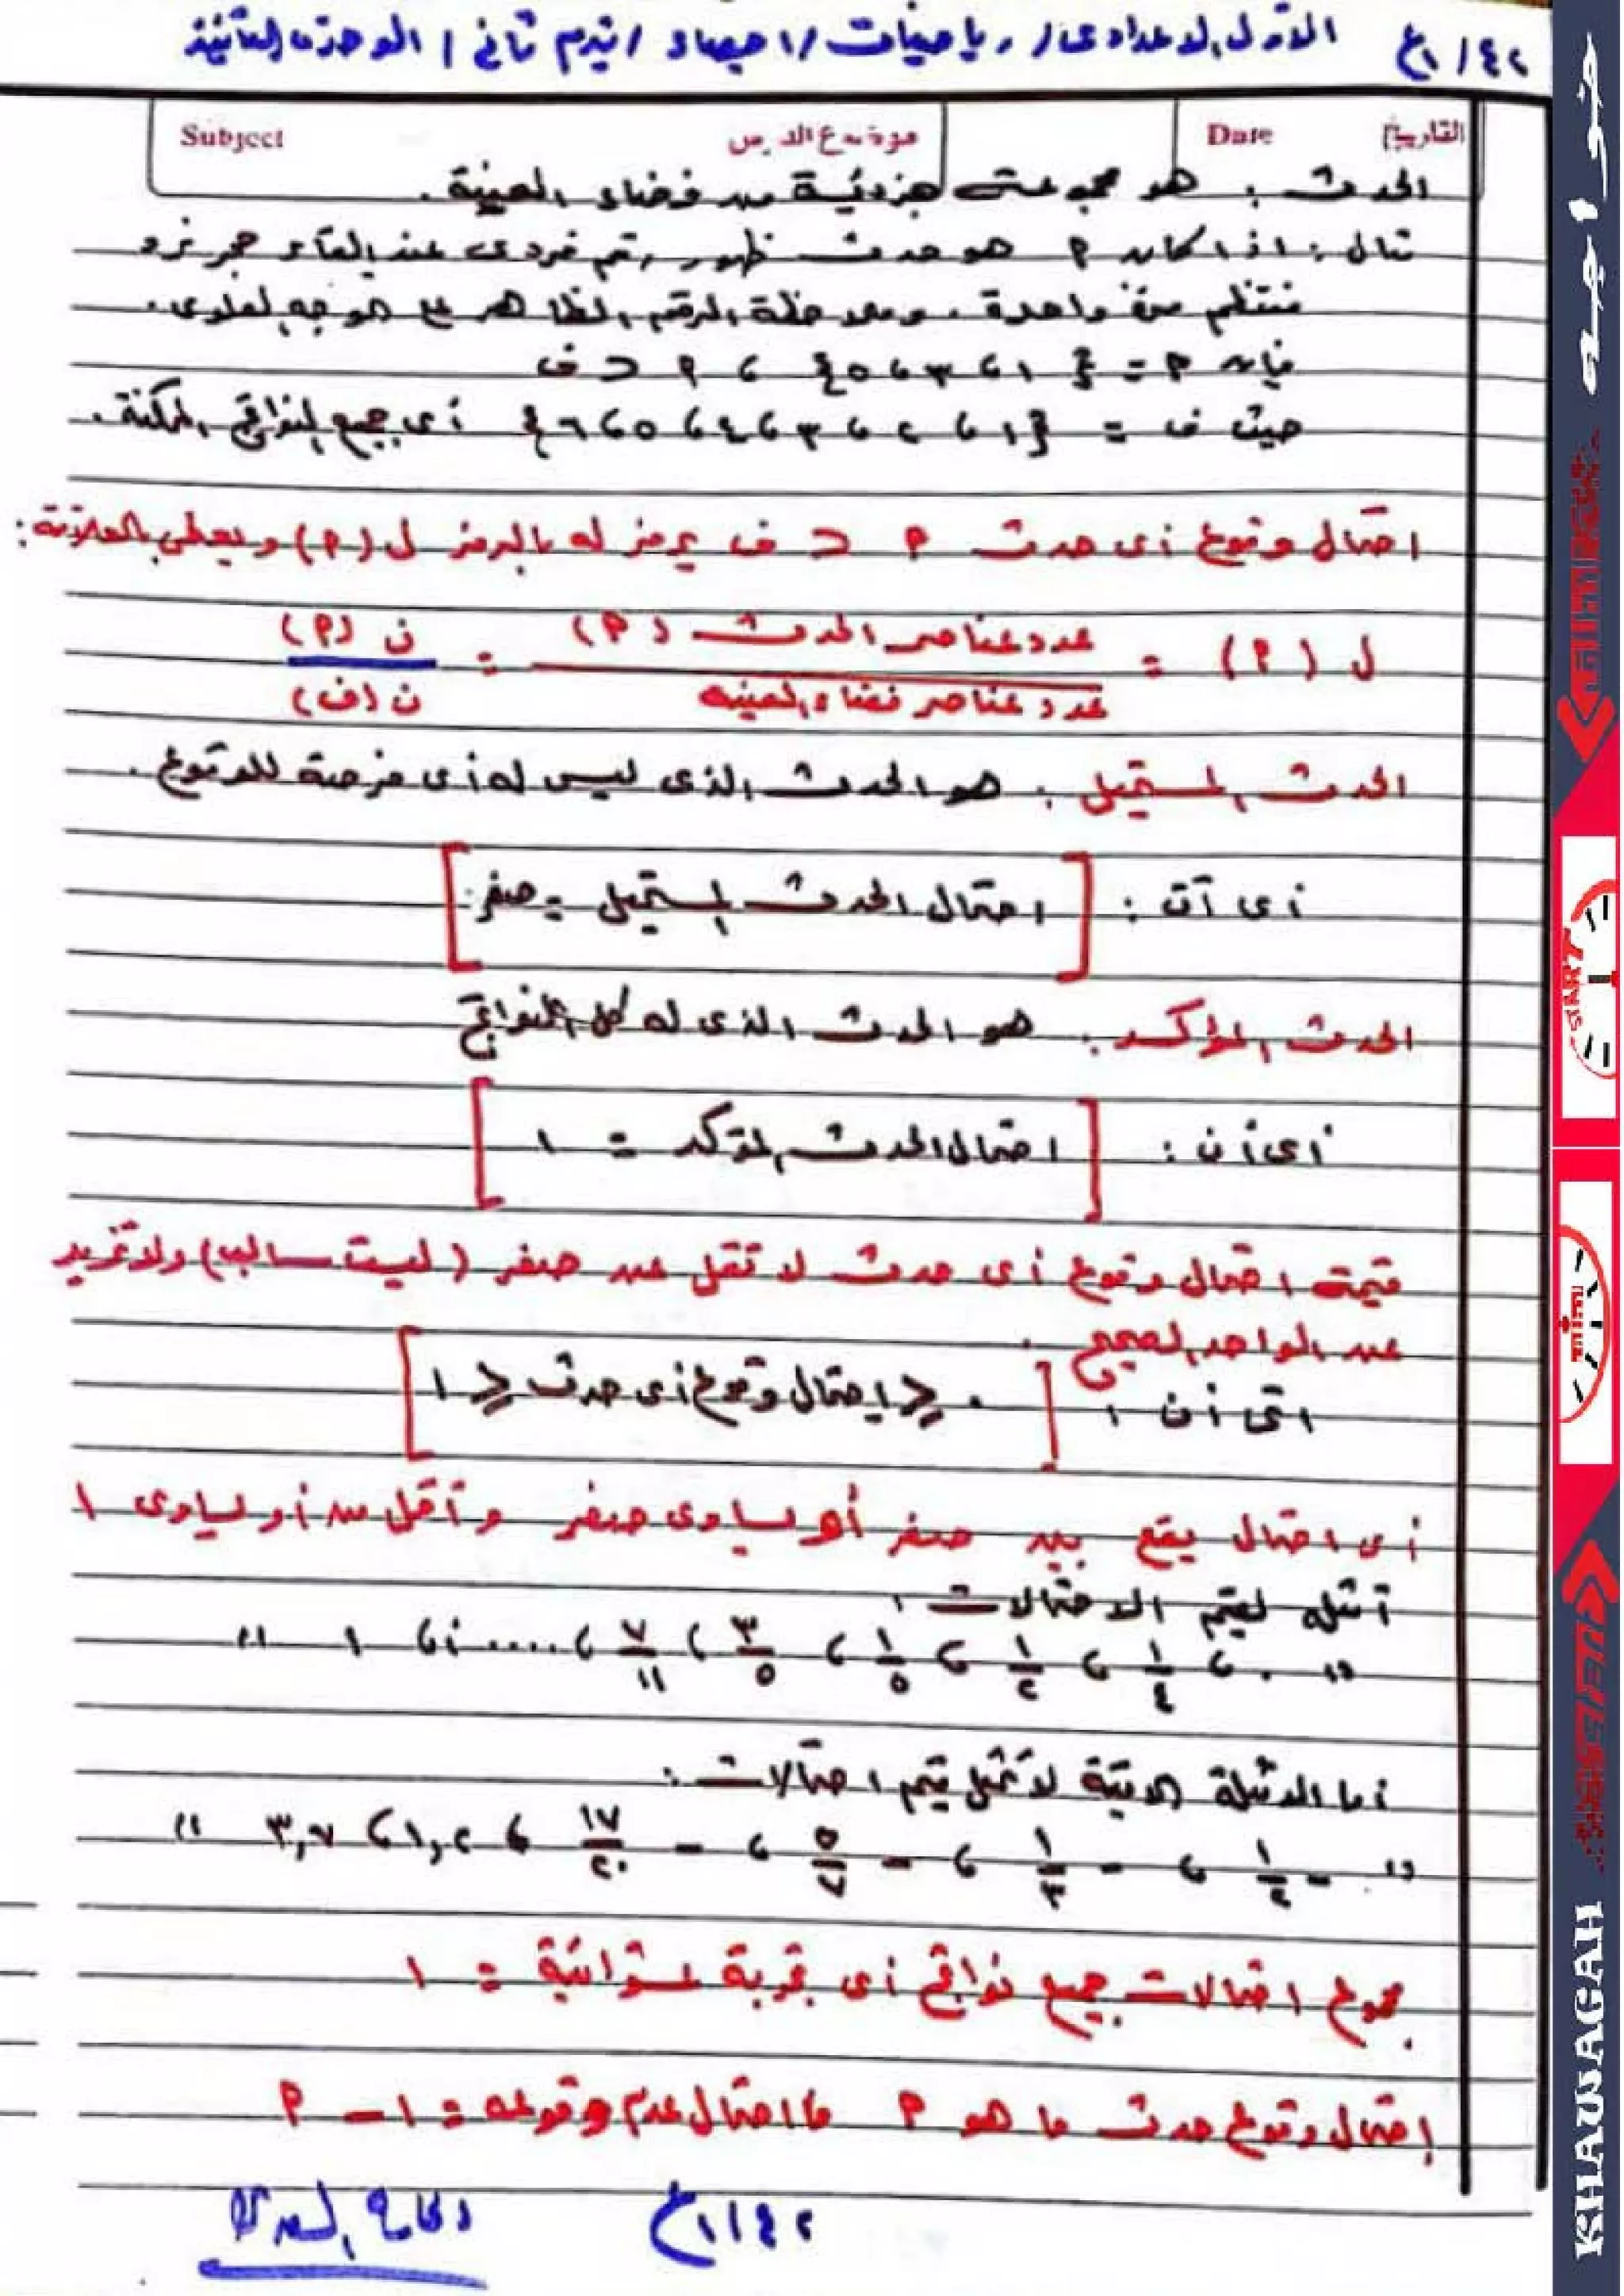 الأول الاعدادى / رياضيات / احصاء / تيرم ثانى / الوحدة الثانية
ع١/٤٢
Subject
موضوع الدرس
Date
التاريخ
الحدث : هو مجموعة جزئية من فضاء العينية .
مثال : اذا كان P هو حدث ظهور رقم فردى عند القاء حجر نرد
منتظم مرة واحدة . وملاحظة الرقم الظاهر على الوجه العلوى .
فإن P = { ١ ، ٣ ، ٥ } ، P ⊂ ف
حيث ف = { ١ ، ٢ ، ٣ ، ٤ ، ٥ ، ٦ } أى جميع النواتج الممكنة .
احتمال وقوع أى حدث P ⊂ ف يرمز له بالرمز ل (P) ويعطى بالعلاقة :
ل (P) = عدد عناصر الحدث (P) / عدد عناصر فضاء العينه = ن (P) / ن (ف)
الحدث المستحيل : هو الحدث الذى ليس له أى فرصة للوقوع .
أى أن : [ احتمال الحدث المستحيل = صفر ]
الحدث المؤكد : هو الحدث الذى له كل النواتج
أى أن : [ احتمال الحدث المؤكد = ١ ]
قيمة احتمال وقوع أى حدث لا تقل عن صفر ( ليست سالب ) ولا تزيد
عن الواحد الصحيح .
اى أن : [ ٠ ≤ احتمال وقوع أى حدث ≤ ١ ]
أى احتمال يقع بين صفر أو يساوى صفر وأقل من أو يساوى ١
أمثله لقيم الاحتمالات :
" ٠ ، ١/٤ ، ١/٢ ، ١/٥ ، ٣/٥ ، ٧/١١ ، .... ، أ ، ١ "
أما الامثلة الاتية لا تمثل قيم احتمالات :
" - ١/٢ ، - ١/٤ ، - ٥/٧ ، - ١٧/٢٠ ، ١,٢ ، ٣,٧ "
مجموع احتمالات جميع نواتج أى تجربة عشوائية = ١
إحتمال وقوع حدث ما هو P فا احتمال عدم وقوعه = ١ - P
ع١/٤٢
خواجه
START
KHAWAGAH